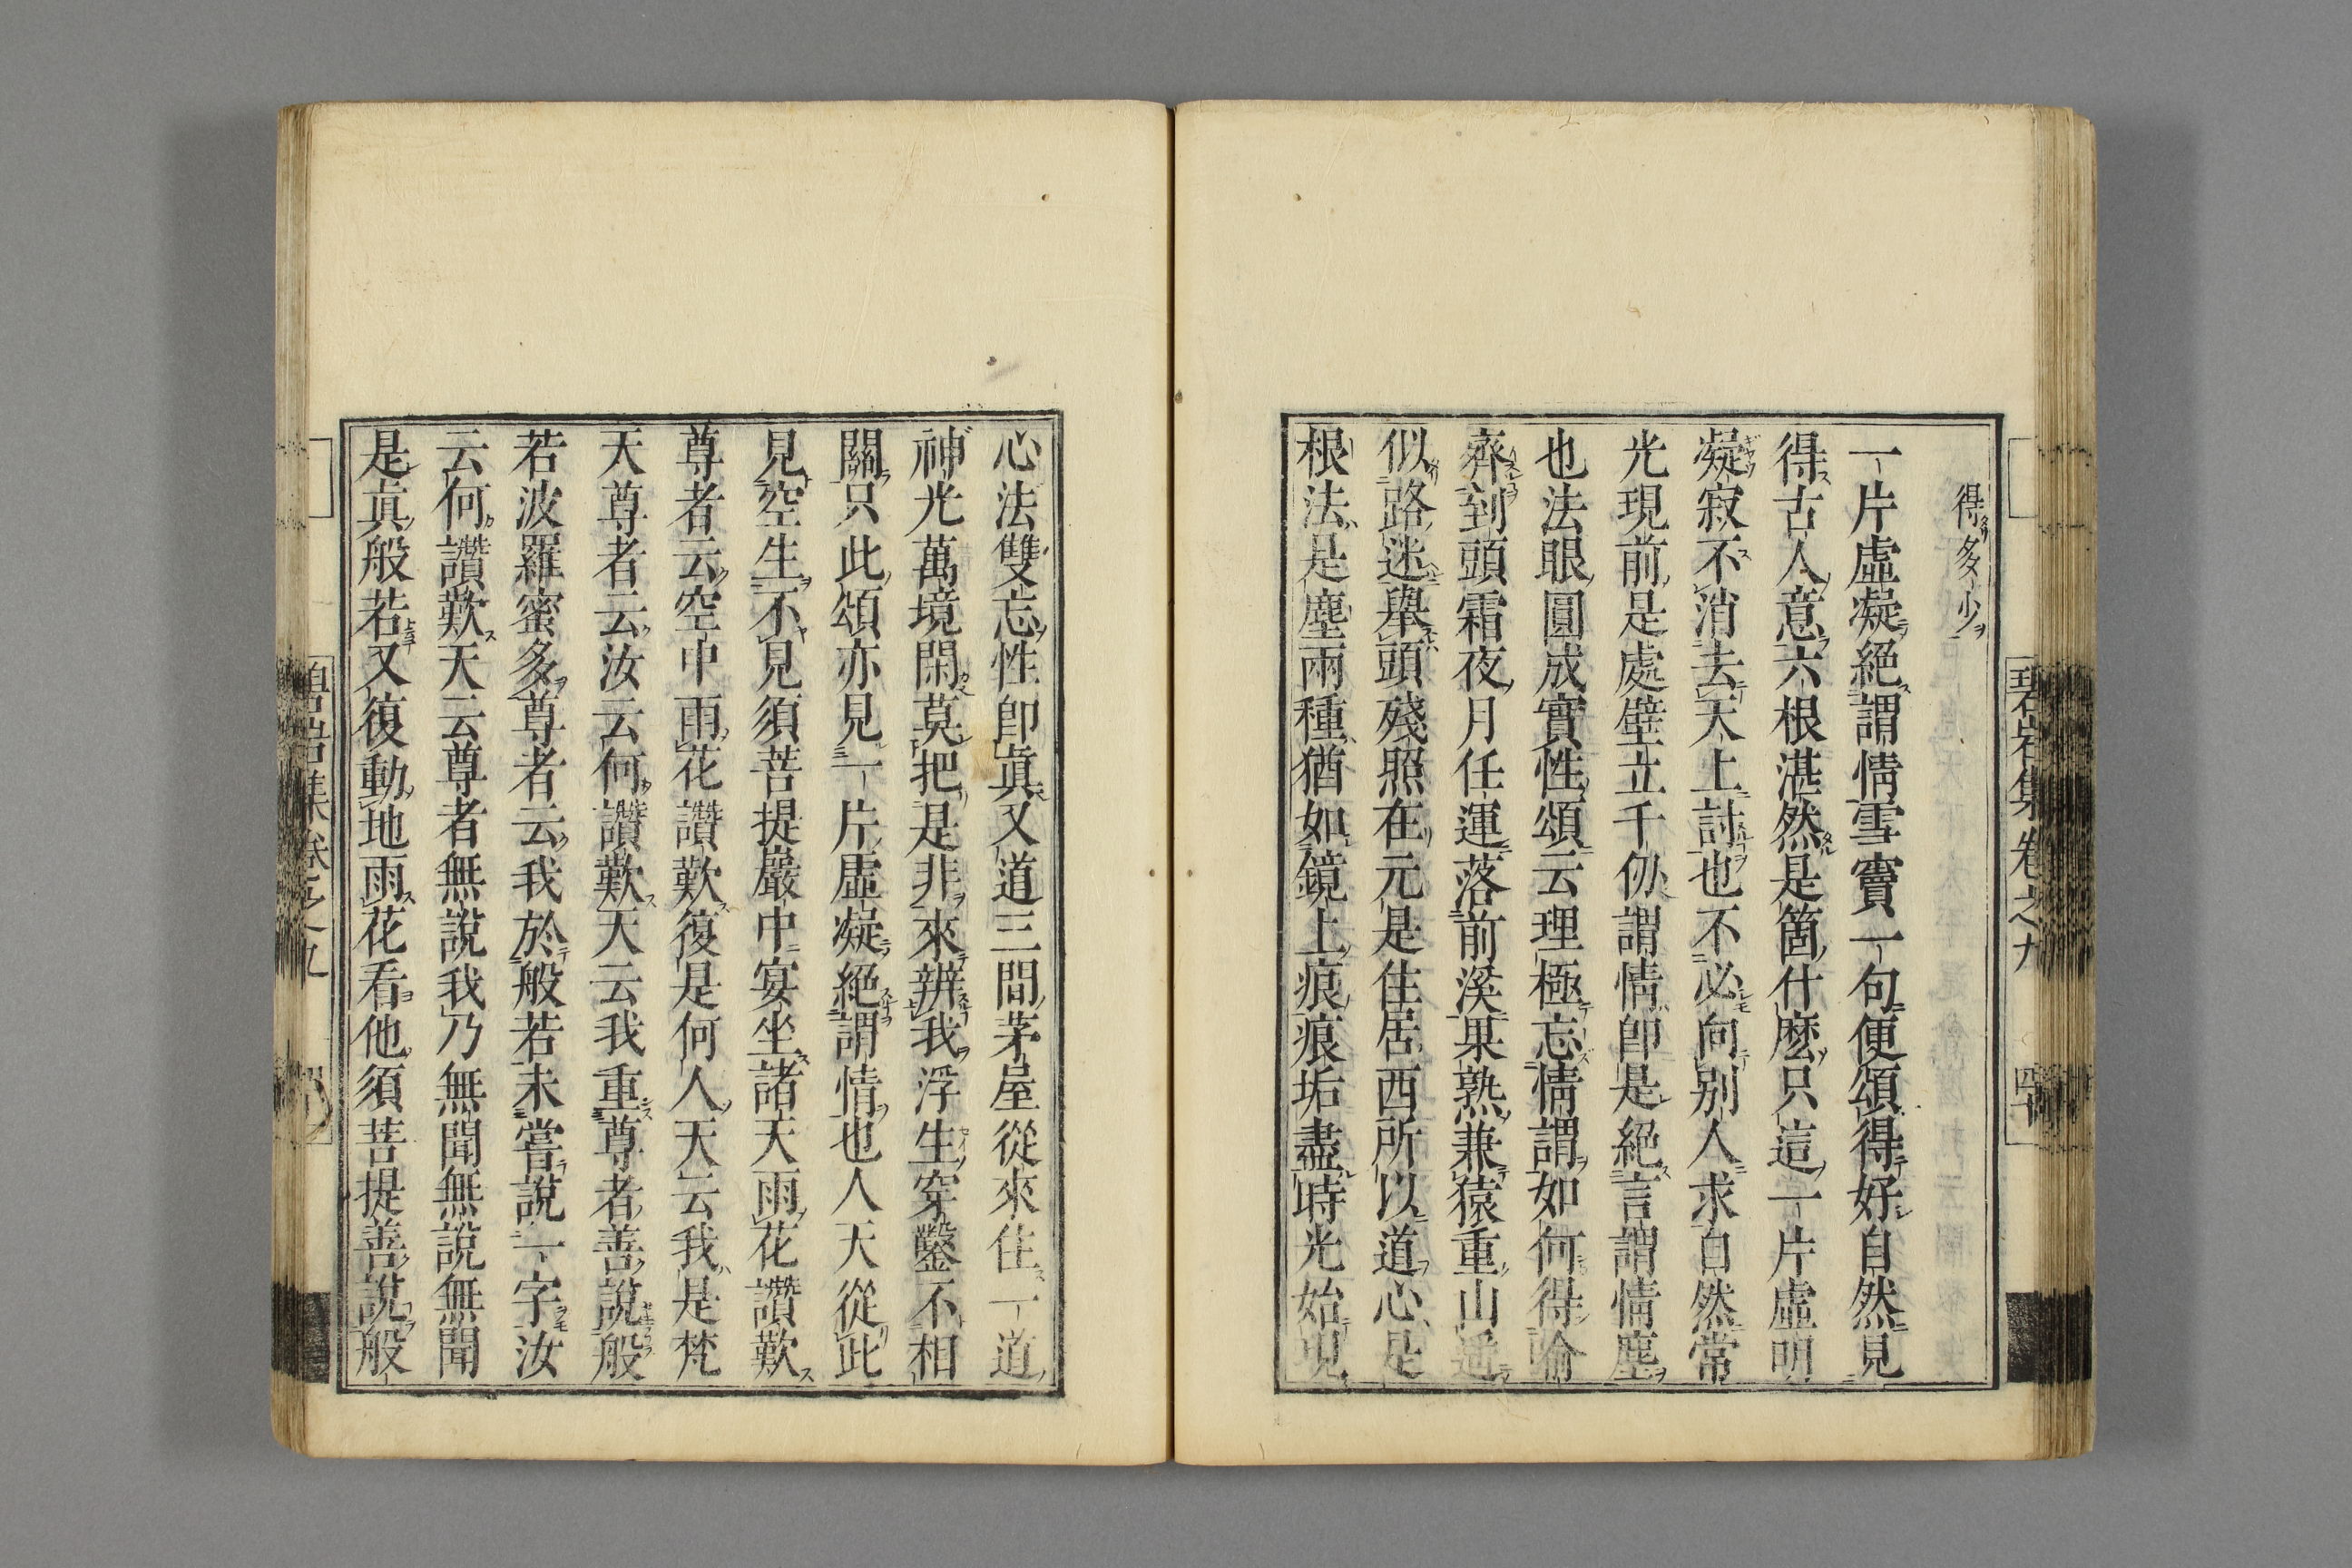 得多少
一片虛凝絕謂情雪竇一句便頌得好自然見
得古人意六根湛然是箇什麼只這一片虛明
凝寂不消去天上討也不必向別人求自然常
光現前是處壁立千仞謂情即是絕言謂情塵
也法眼圓成實性頌云理極忘情謂如何得喻
齊到頭霜夜月任運落前溪果熟兼猿重山遙
似路迷舉頭殘照在元是住居西所以道心是
根法是塵兩種猶如鏡上痕痕垢盡時光始現
碧岩集卷之九
四十
心法雙忘性即眞又道三間茅屋從來住一道
神光萬境閑莫把是非來辨我浮生穿鑿不相
關只此頌亦見一片虛凝絕謂情也人天從此
見空生不見須菩提巖中宴坐諸天雨花讚歎
尊者云空中雨花讚歎復是何人天云我是梵
天尊者云汝云何讚歎天云我重尊者善說般
若波羅蜜多尊者云我於般若未嘗說一字汝
云何讚歎天云尊者無說我乃無聞無說無聞
是眞般若又復動地雨花看他須菩提善說般